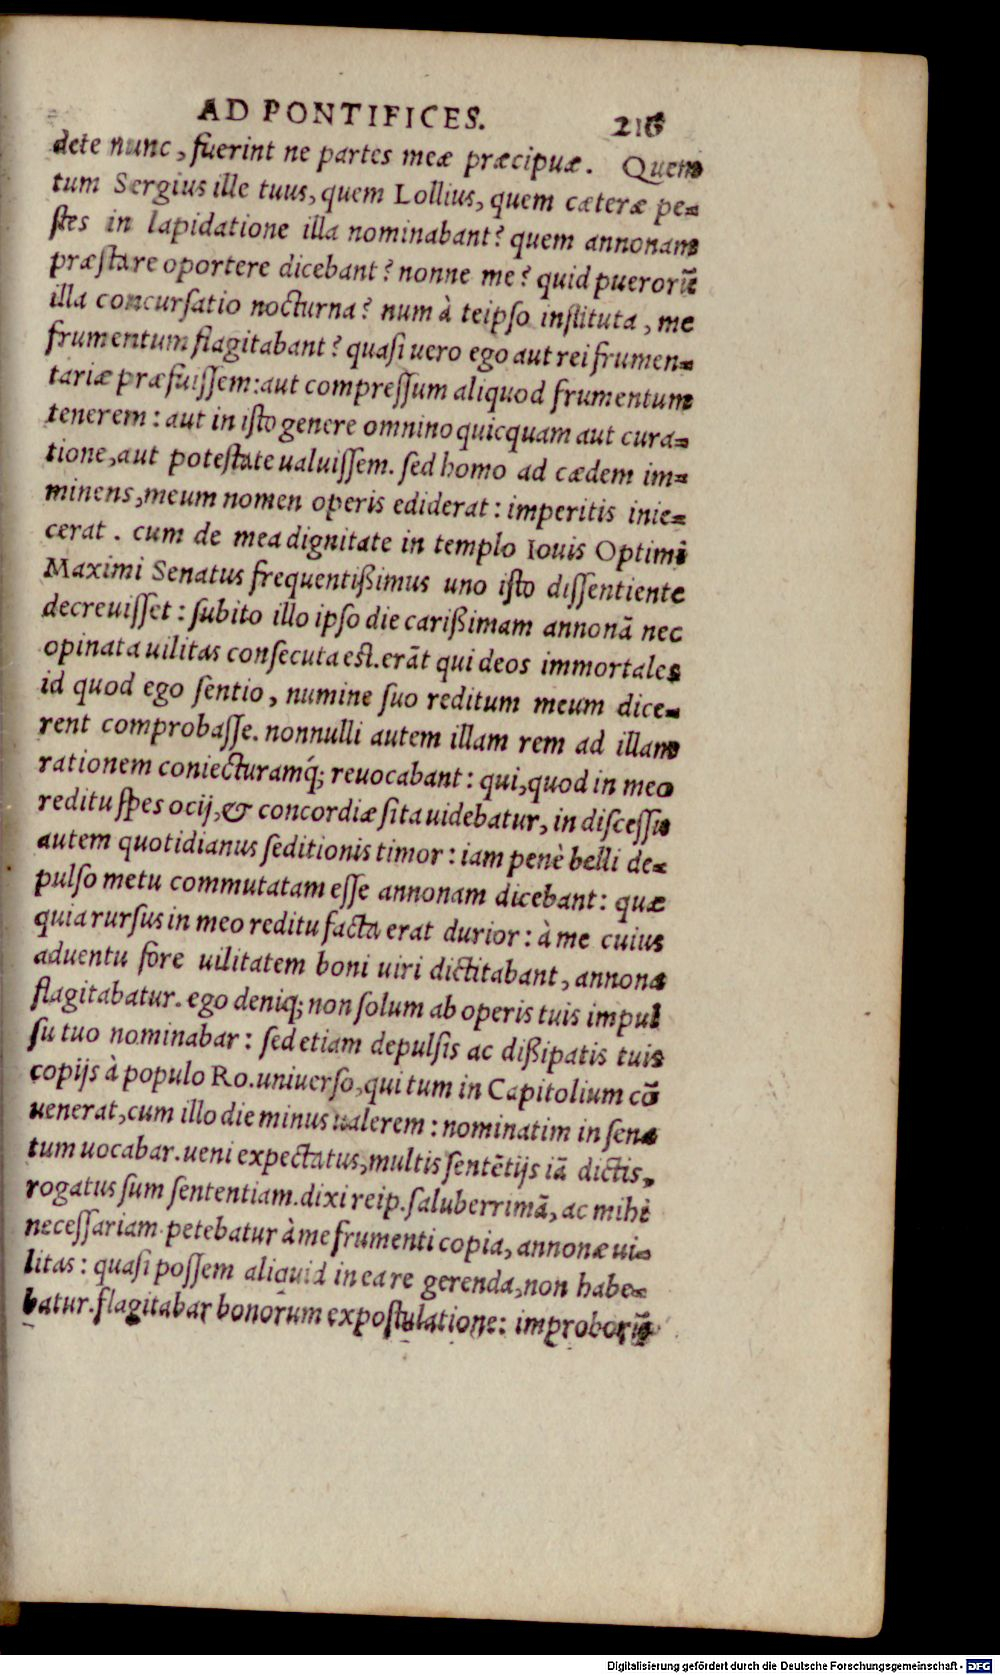 AD PONTIFICES. 216
dete nunc, fuerint ne partes meæ præcipuæ. Quem
tum Sergius ille tuus, quem Lollius, quem cæteræ pe-
stes in lapidatione illa nominabant? quem annonam
præstare oportere dicebant? nonne me? quid puerorũ
illa concursatio nocturna? num à teipso instituta, me
frumentum flagitabant? quasi uero ego aut rei frumen-
tariæ præfuissem: aut compressum aliquod frumentum
tenerem: aut in isto genere omnino quicquam aut cura-
tione, aut potestate ualuissem. sed homo ad cædem im-
minens, meum nomen operis ediderat: imperitis inie-
cerat. cum de mea dignitate in templo Iouis Optimi
Maximi Senatus frequentißimus uno isto dissentiente
decreuisset: subito illo ipso die carißimam annonã nec
opinata uilitas consecuta est. erãt qui deos immortales
id quod ego sentio, numine suo reditum meum dice-
rent comprobasse. nonnulli autem illam rem ad illam
rationem coniecturamq́; reuocabant: qui, quod in meo
reditu spes ocij, & concordiæ sita uidebatur, in discessu
autem quotidianus seditionis timor: iam penè belli de-
pulso metu commutatam esse annonam dicebant: quæ
quia rursus in meo reditu facta erat durior: à me cuius
aduentu fore uilitatem boni uiri dictitabant, annona
flagitabatur. ego deniq; non solum ab operis tuis impul
su tuo nominabar: sed etiam depulsis ac dißipatis tuis
copijs à populo Ro. uniuerso, qui tum in Capitolium cõ
uenerat, cum illo die minus ualerem: nominatim in sena
tum uocabar. ueni expectatus, multis sentẽtijs iã dictis,
rogatus sum sententiam. dixi reip. saluberrimã, ac mihi
necessariam. petebatur à me frumenti copia, annonæ ui-
litas: quasi possem aliquid in ea re gerenda, non habe-
batur. flagitabar bonorum expostulatione: improborũ
Digitalisierung gefördert durch die Deutsche Forschungsgemeinschaft - DFG